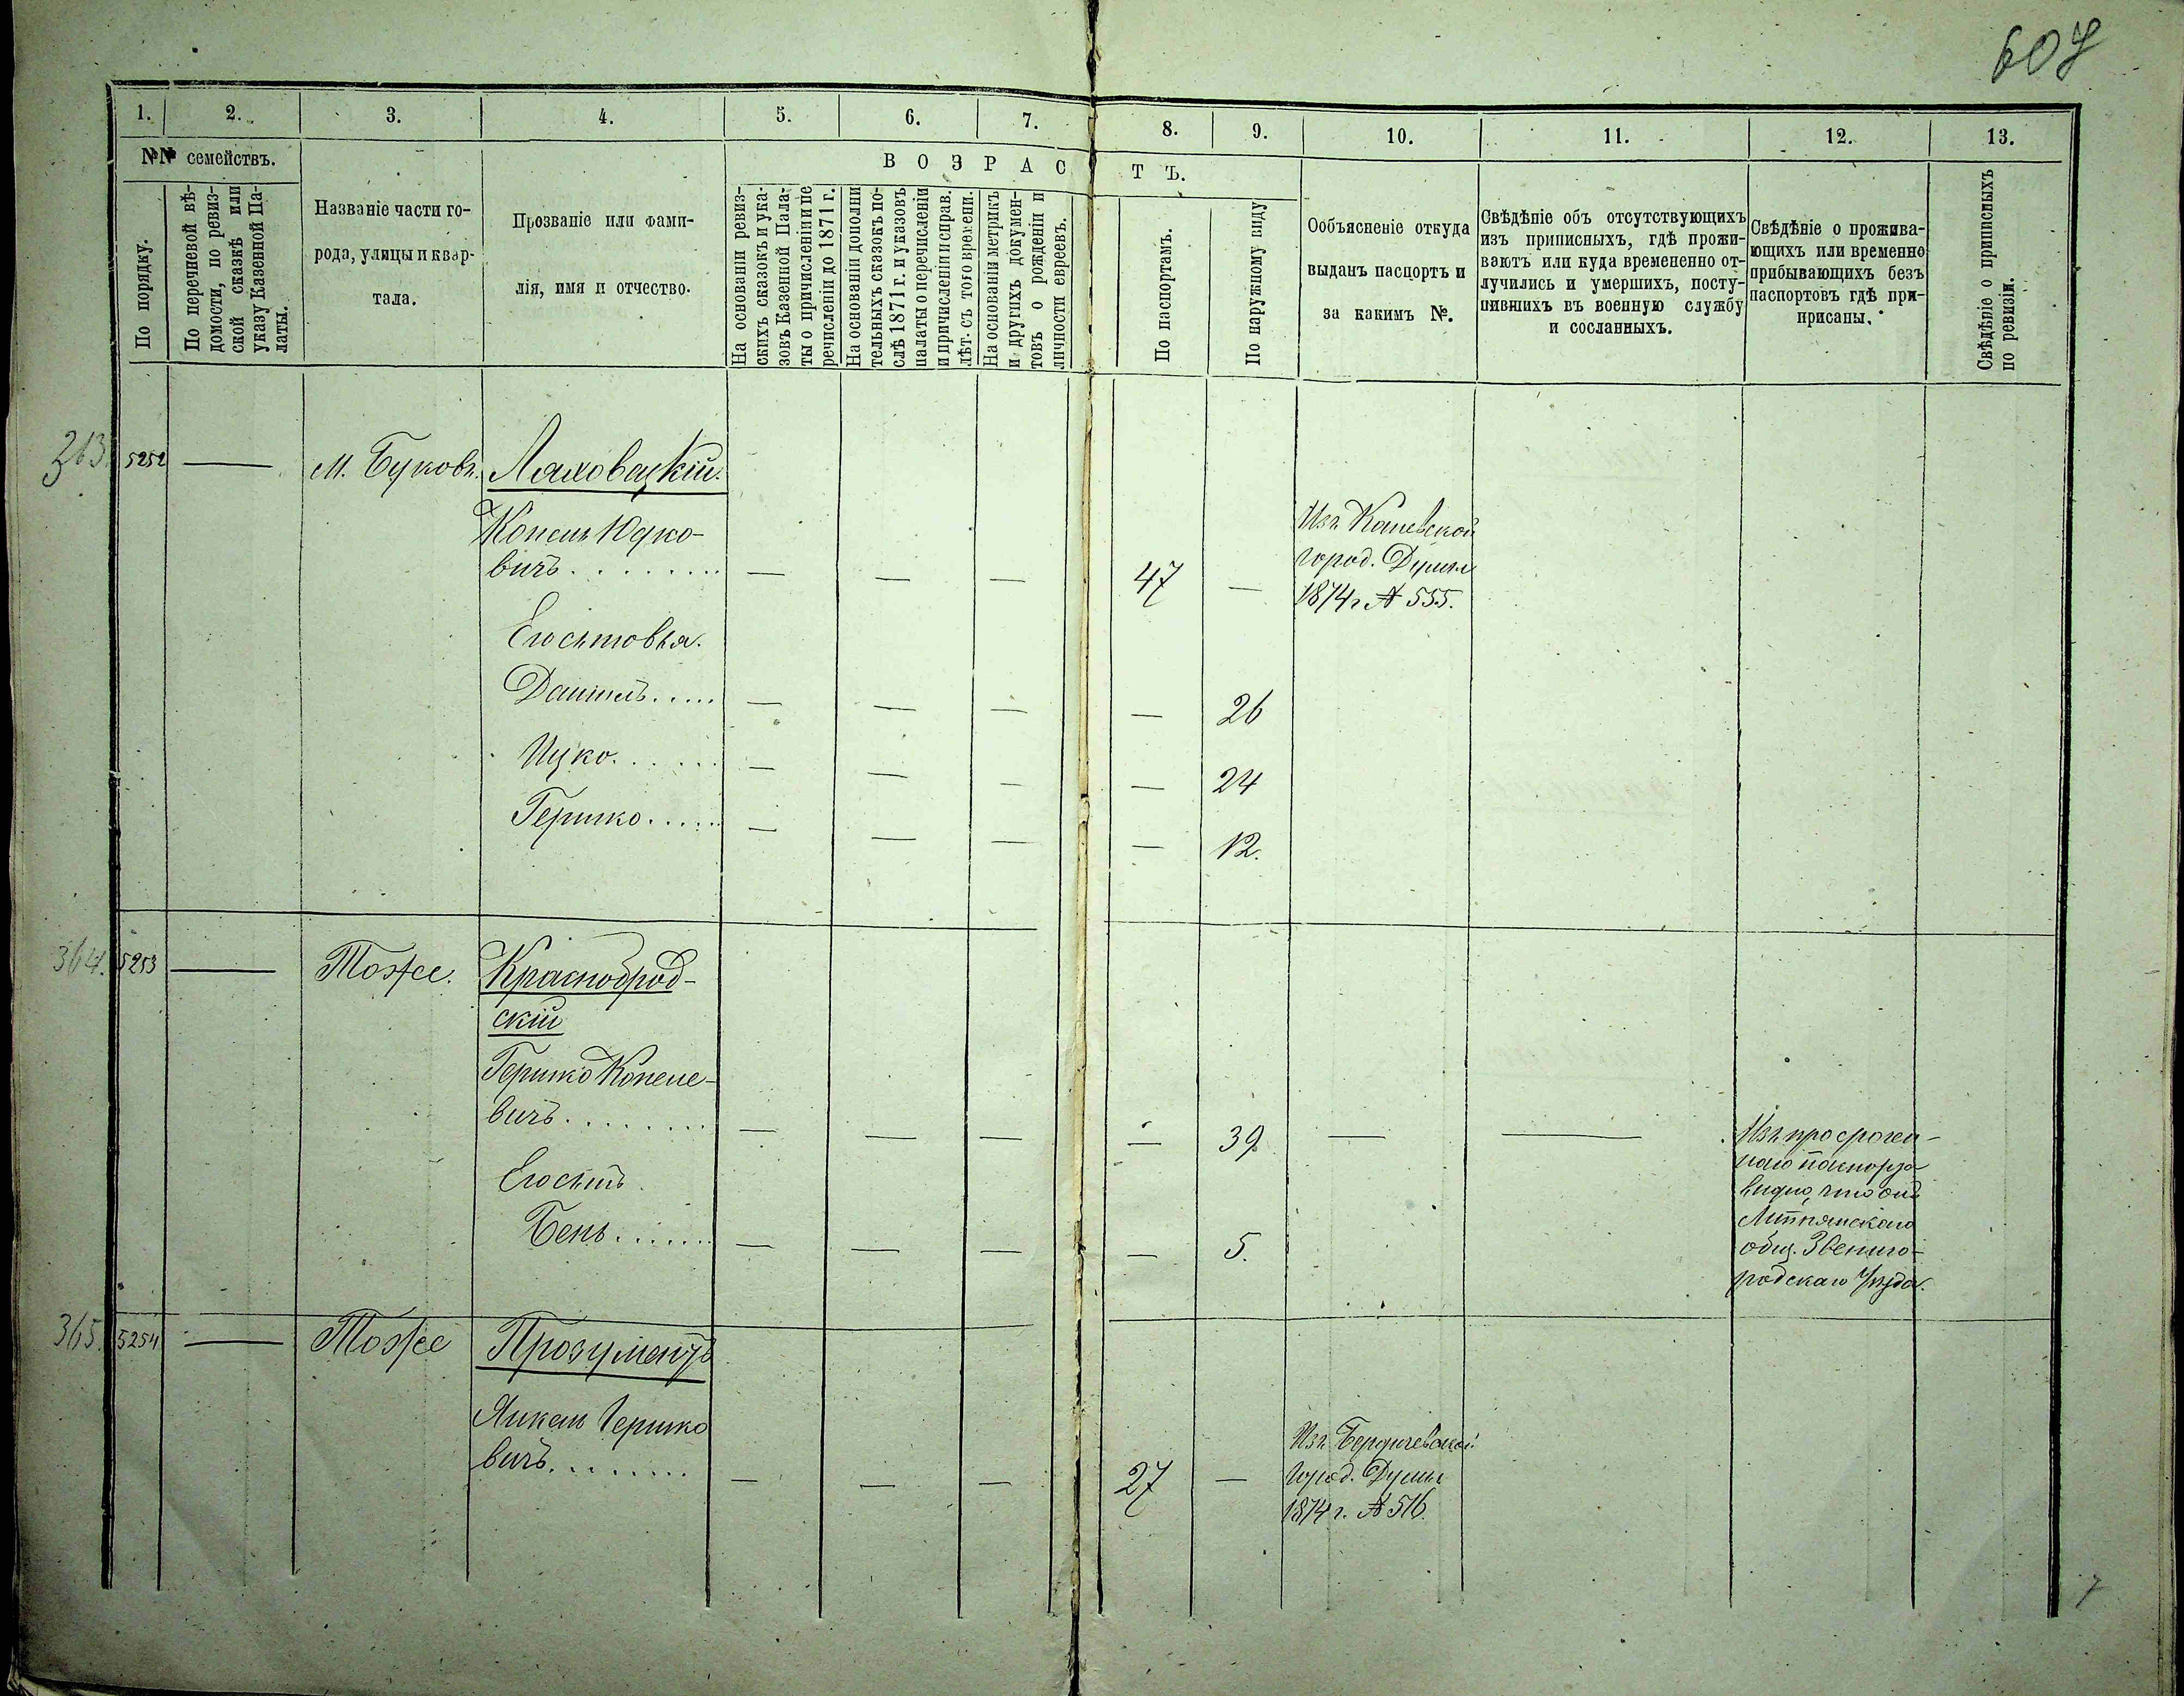 607
1. 2. 3. 4. 5. 6. 7. 8. 9. 10. 11. 12. 13.
№№ семействъ.
В О З Р А С Т Ъ.
По порядку.
По перечневой вѣ-
домости, по ревиз-
ской сказкѣ или
указу Казенной Па-
латы.
Названіе части го-
рода, улицы и квар-
тала.
Прозваніе или фами-
лія, имя и отчество.
На основаніи ревиз-
скихъ сказокъ и ука-
зовъ Казенной Пала-
ты о причисленіи и пе
речисленіи до 1871 г.
На основаніи дополни
тельныхъ сказокъ по-
слѣ 1871 г. и указовъ
палаты о перечисленіи
и причисленіи и справ.
лѣт. съ того времени.
На основаніи метрикъ
и другихъ докумен-
товъ о рожденіи и
личности евреевъ.
По паспортамъ.
По наружному виду
Ообъясненіе откуда
выданъ паспортъ и
за какимъ №.
Свѣдѣніе объ отсутствующихъ
изъ приписныхъ, гдѣ прожи-
ваютъ или куда времененно от-
лучились и умершихъ, посту-
пившихъ въ военную службу
и сосланныхъ.
Свѣдѣніе о прожива-
ющихъ или временно
прибывающихъ безъ
паспортовъ гдѣ при-
присаны.
Свѣдѣніе о приписныхъ
по ревизіи.
363. 5252 — м. Буковъ. Ляховецкій.
Копель Юдко-
вичъ . . . . . . . . — — — 47 —
Изъ Каневской
город. Думы
1874 г № 555.
Его сыновья.
Даниилъ . . . . . — — — — 26
Ицко . . . . . . — — — — 24
Гершко . . . . . — — — — 12.
364. 5253 — Тоже. Красноброд-
скій
Гершко Копеле-
вичъ . . . . . . . . — — — — 39 — —
Изъ просрочен-
наго паспорта
видно, что онъ
общ. Звениго-
родскаго Уѣзда.
Его сынъ
Бень . . . . . . . — — — — 5.
365. 5254 — Тоже Прозументъ
Янкель Гершко
вичъ . . . . . . . . — — — 27 —
Изъ Бердичевской
Город. Думы
1874 г. № 516.